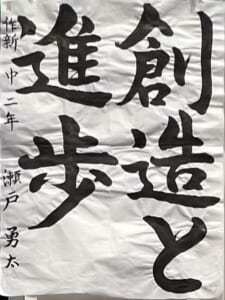 創造と
進歩
作新 中二年 瀬戸 勇太